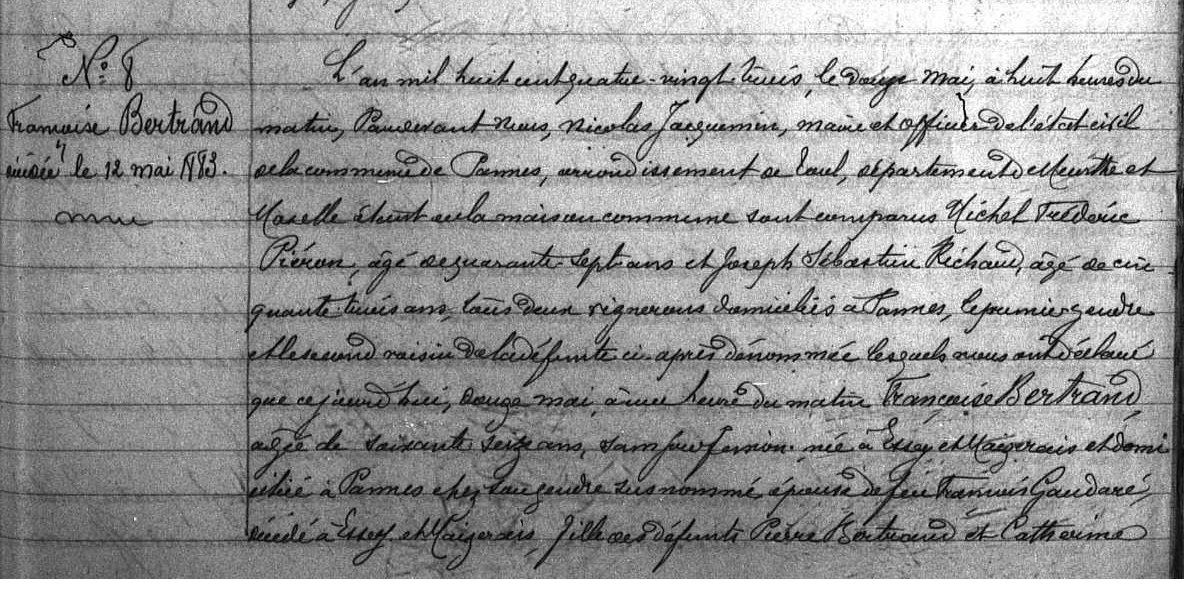 N° 8
Françoise Bertrand
décédée le 12 mai 1883.
L'an mil huit cent quatre-vingt trois, le douze mai, à huit heures du
matin, Pardevant nous, Nicolas Jacquemin, maire et officier de l'état civil
de la commune de Pannes, arrondissement de Toul, département de Meurthe et
Moselle étant en la maison commune sont comparus Michel Fréderic
Piéron, âgé de quarante-sept ans et Joseph Sébastien Richard, âgé de cin-
quante trois ans, tous deux vignerons domiciliés à Pannes, le premier gendre
et le second voisin de la défunte ci-après dénommée lesquels nous ont déclaré
que cejourd'hui, douze mai, à une heure du matin Françoise Bertrand
agée de soixante seize ans, sans profession née à Essey et Maizerais et domi
ciliée à Pannes chez son gendre susnommé, épouse de feu François Gaudaré,
décédé à Essey et Maizerais, fille des défunts Pierre Bertrand et Catherine